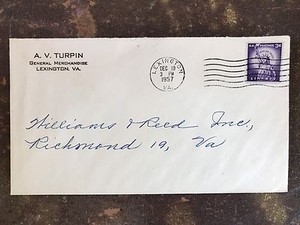 A. V. TURPIN
GENERAL MERCHANDISE
LEXINGTON, VA.
LEXINGTON
DEC 18
3 PM
1957
VA.
3¢
Williams & Reed Inc,
Richmond 19, Va